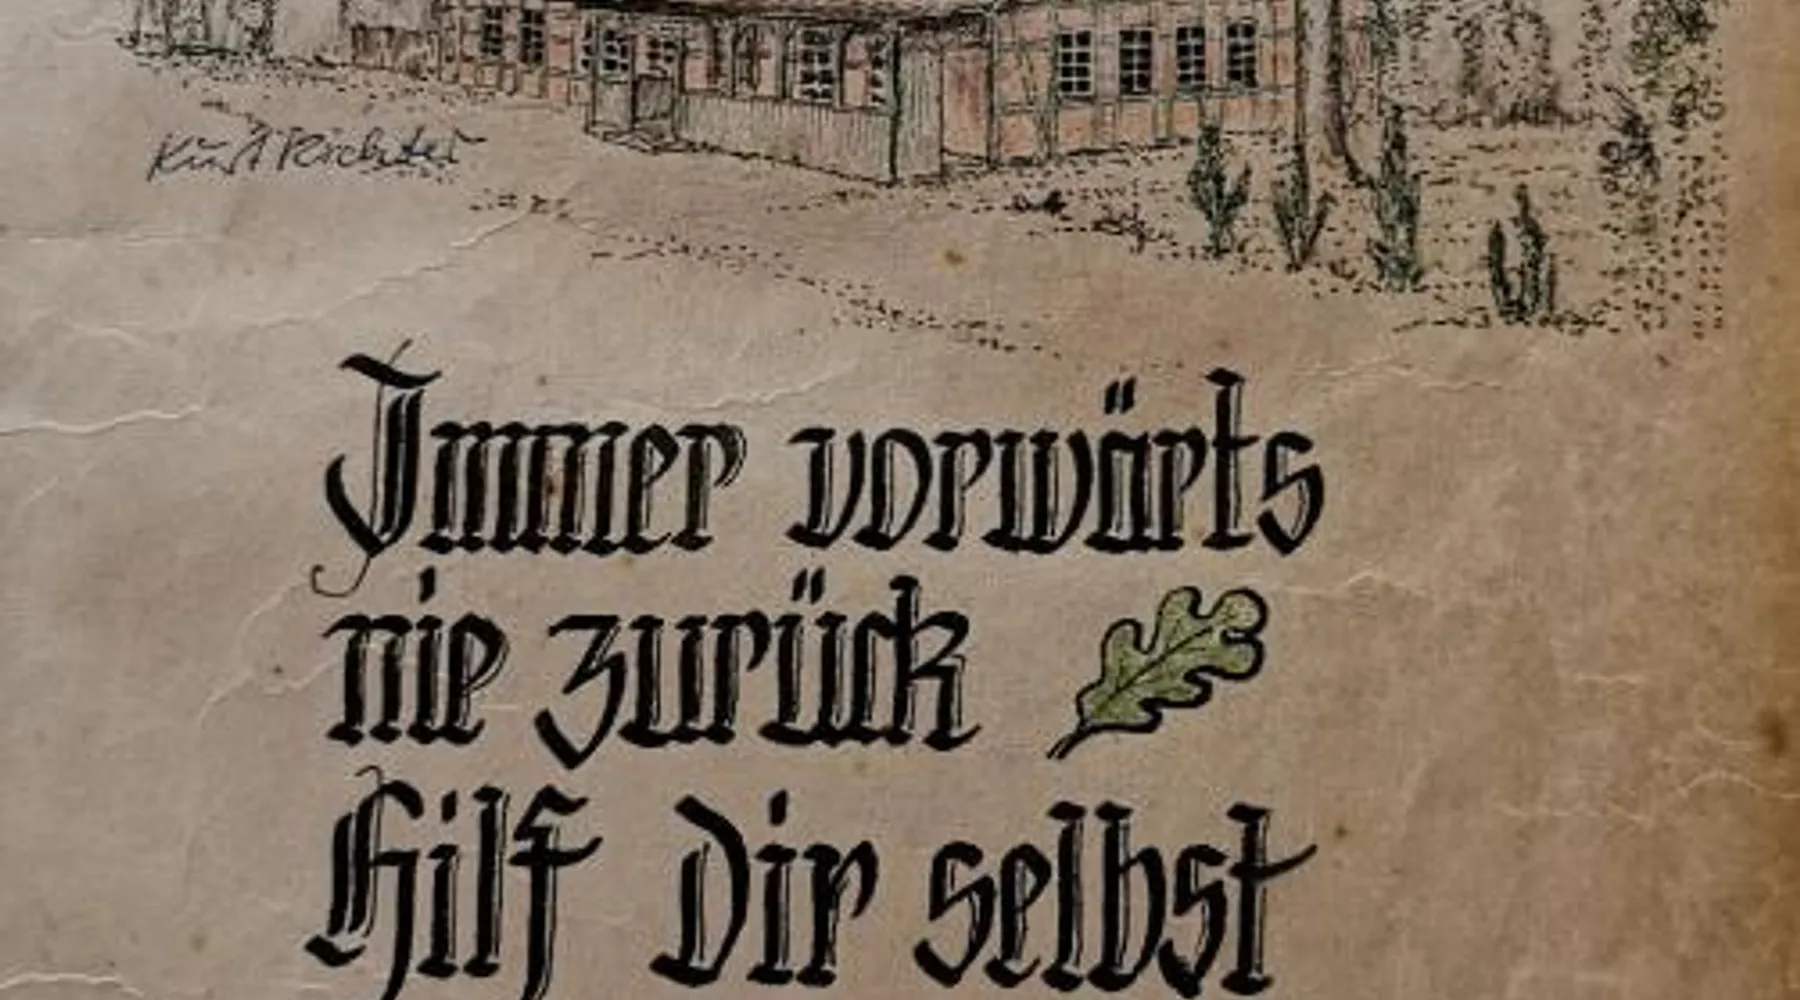 Kurt Richter
Immer vorwärts
nie zurück
Hilf Dir selbst